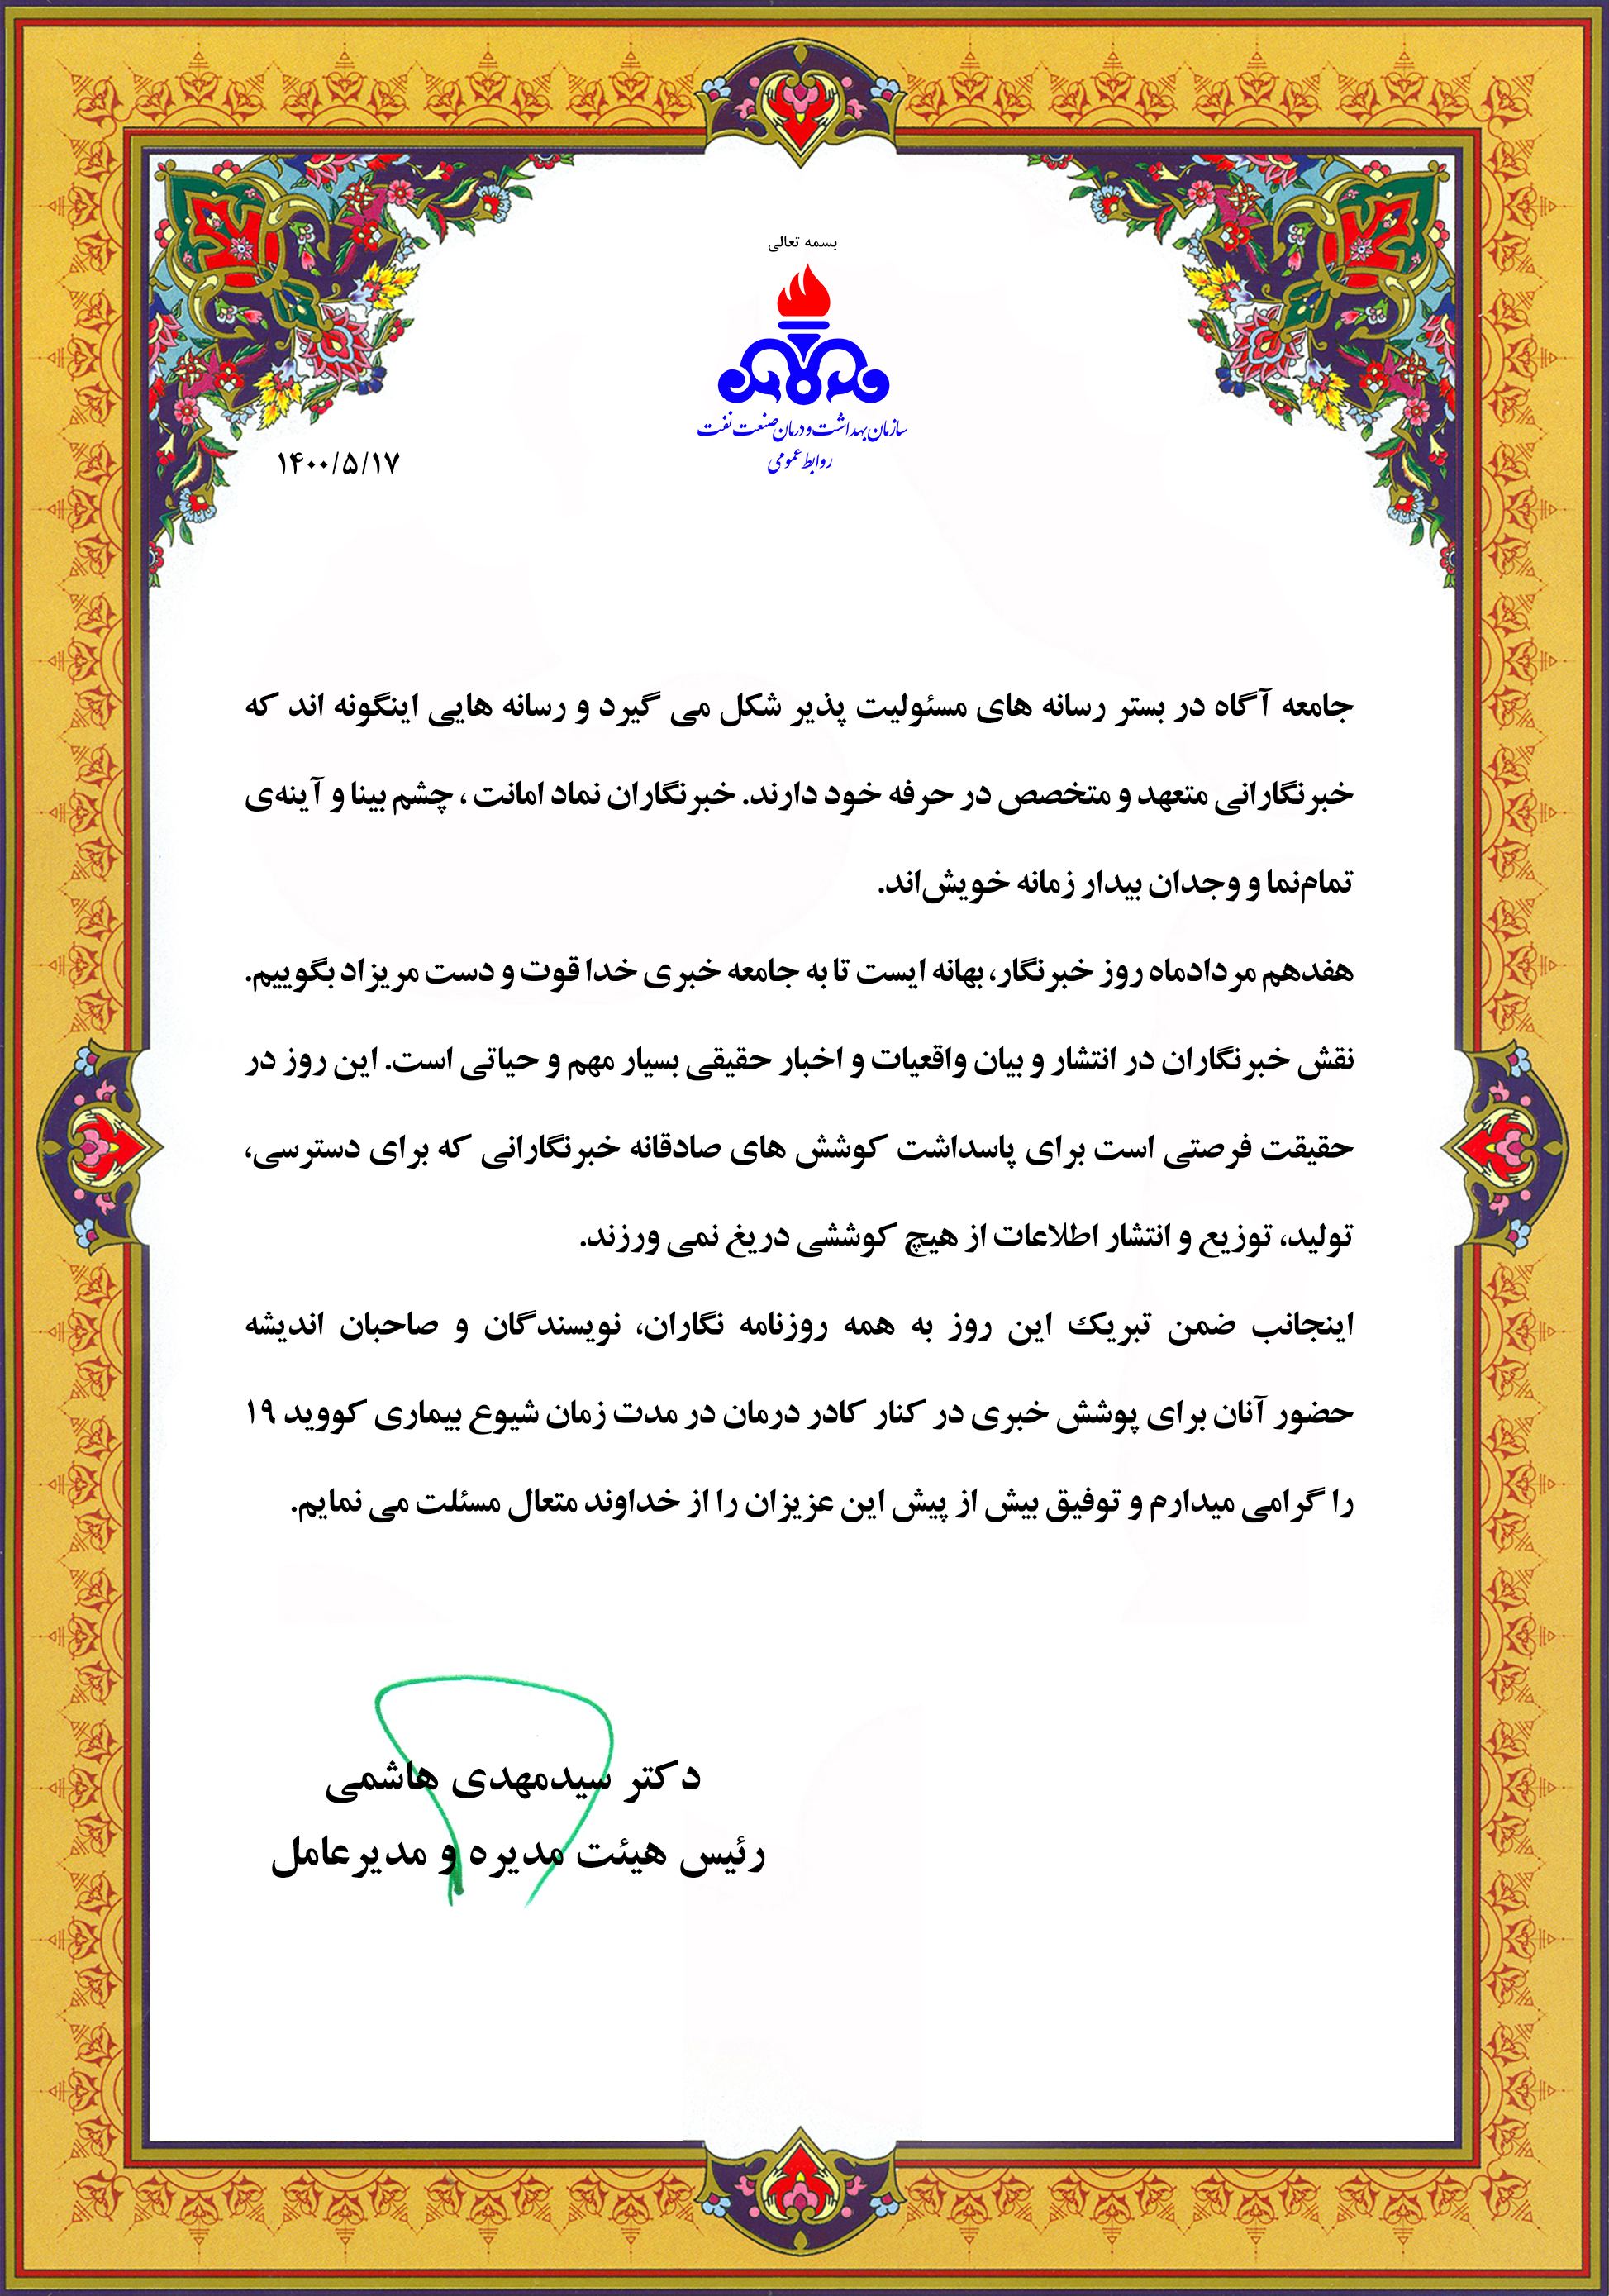 بسمه تعالی
سازمان بهداشت و درمان صنعت نفت
روابط عمومی
۱۴۰۰/۵/۱۷
جامعه آگاه در بستر رسانه های مسئولیت پذیر شکل می گیرد و رسانه هایی اینگونه اند که
خبرنگارانی متعهد و متخصص در حرفه خود دارند. خبرنگاران نماد امانت ، چشم بینا و آینه‌ی
تمام‌نما و وجدان بیدار زمانه خویش‌اند.
هفدهم مردادماه روز خبرنگار، بهانه ایست تا به جامعه خبری خدا قوت و دست مریزاد بگوییم.
نقش خبرنگاران در انتشار و بیان واقعیات و اخبار حقیقی بسیار مهم و حیاتی است. این روز در
حقیقت فرصتی است برای پاسداشت کوشش های صادقانه خبرنگارانی که برای دسترسی،
تولید، توزیع و انتشار اطلاعات از هیچ کوششی دریغ نمی ورزند.
اینجانب ضمن تبریک این روز به همه روزنامه نگاران، نویسندگان و صاحبان اندیشه
حضور آنان برای پوشش خبری در کنار کادر درمان در مدت زمان شیوع بیماری کووید ۱۹
را گرامی میدارم و توفیق بیش از پیش این عزیزان را از خداوند متعال مسئلت می نمایم.
دکتر سیدمهدی هاشمی
رئیس هیئت مدیره و مدیرعامل